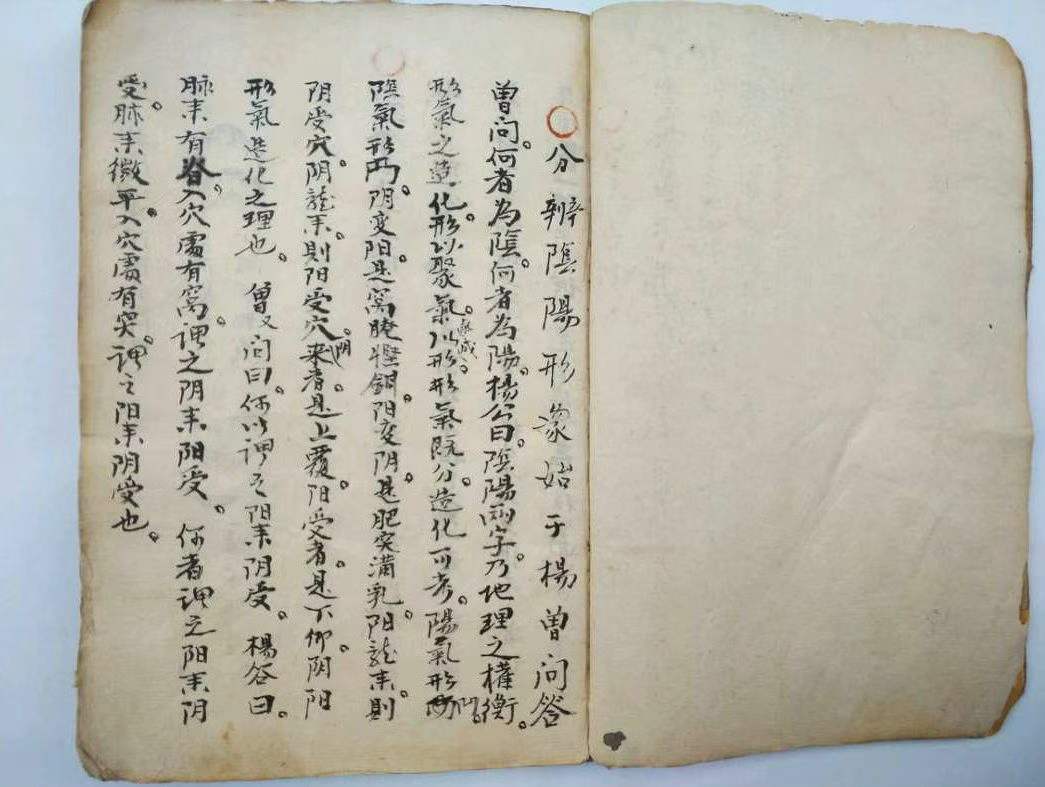 分辨陰陽形象始于楊曾问答
曾问。何者為陰。何者為陽。楊公曰。陰陽兩字。乃地理之權衡。
形氣之造化。形以聚氣。氣以成形。形氣既分。造化可考。陽氣形凸
陰氣形凹。阴变阳是窝。阳变阴。是肥突满乳。阳龙来。則
阴受穴。阴龙来。則阳受穴。阴来者。是上覆。阳受者。是下仰。阴阳
形氣造化之理也。曾又问曰。何以謂之阳来阴受。楊答曰。
脉来有脊。入穴處有窝。謂之阴来阳受。何者謂之阳来阴
受。脉来微平。入穴處有突。謂之阳来阴受也。